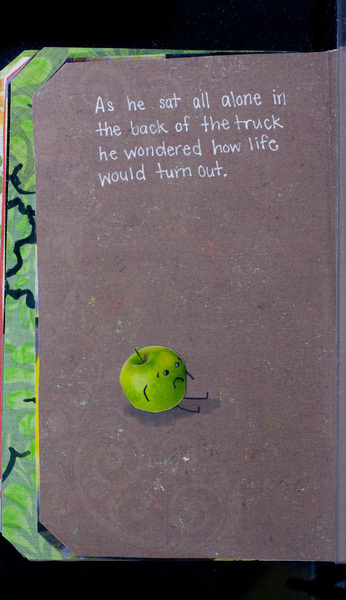 As he sat all alone in
the back of the truck
he wondered how life
would turn out.